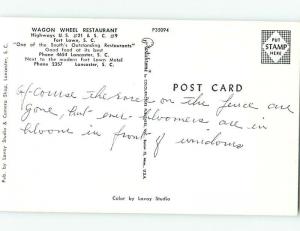 WAGON WHEEL RESTAURANT
Highways U.S. #21 & S.C. #9
Fort Lawn, S.C.
"One of the South's Outstanding Restaurants"
Good food at its best
Phone 4654 Lancaster, S.C.
Next to the modern Fort Lawn Motel
Phone 2357 Lancaster, S.C.
P35094
PUT
STAMP
HERE
POST CARD
Of course the roses on the fence are
gone, but ever bloomers are in
bloom in front of windows
Color by Lavoy Studio
Pub. by Lavoy Studio & Camera Shop, Lancaster, S. C.